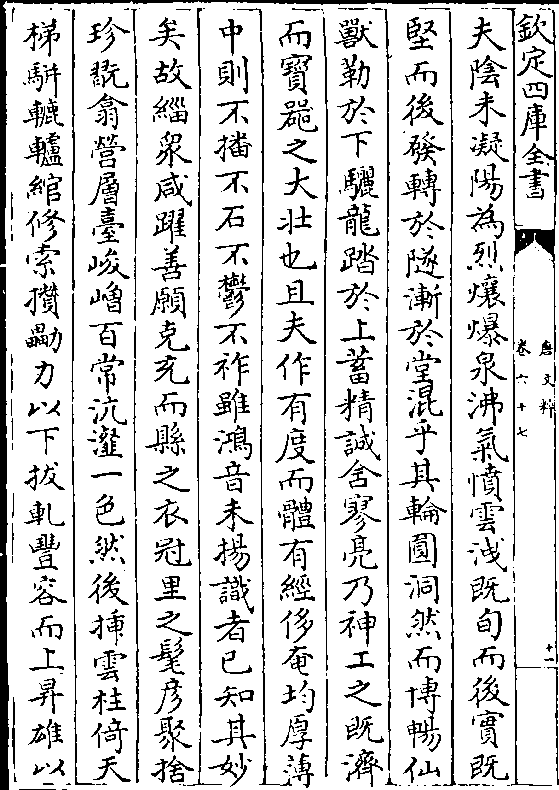 欽定四庫全書
唐文粹
卷六十七
十一
夫陰未凝陽為烈爊爆泉沸氣憤雲洩既旬而後實既
堅而後發轉於隧漸於堂混乎其輪圓洞然而博暢仙
獸勒於下驪龍踏於上蓄精誠含寥亮乃神工之既濟
而寶噐之大壯也且夫作有度而體有經侈奄均厚薄
中則不播不石不鬱不祚雖鴻音未揚識者已知其妙
矣故緇衆咸躍善願克充而縣之衣冠里之髦彦聚捨
珍翫翕營層臺峻嶒百常沆瀣一色然後揷雲柱倚天
梯騈轆轤綰修索攢勵力以下拔軋豐容而上昇雄以